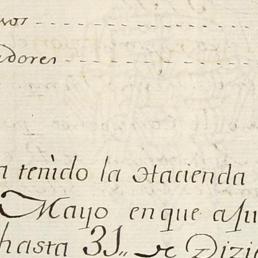 adores
a tenido la Hacienda
Mayo en que aju
hasta 31,, de Dizi